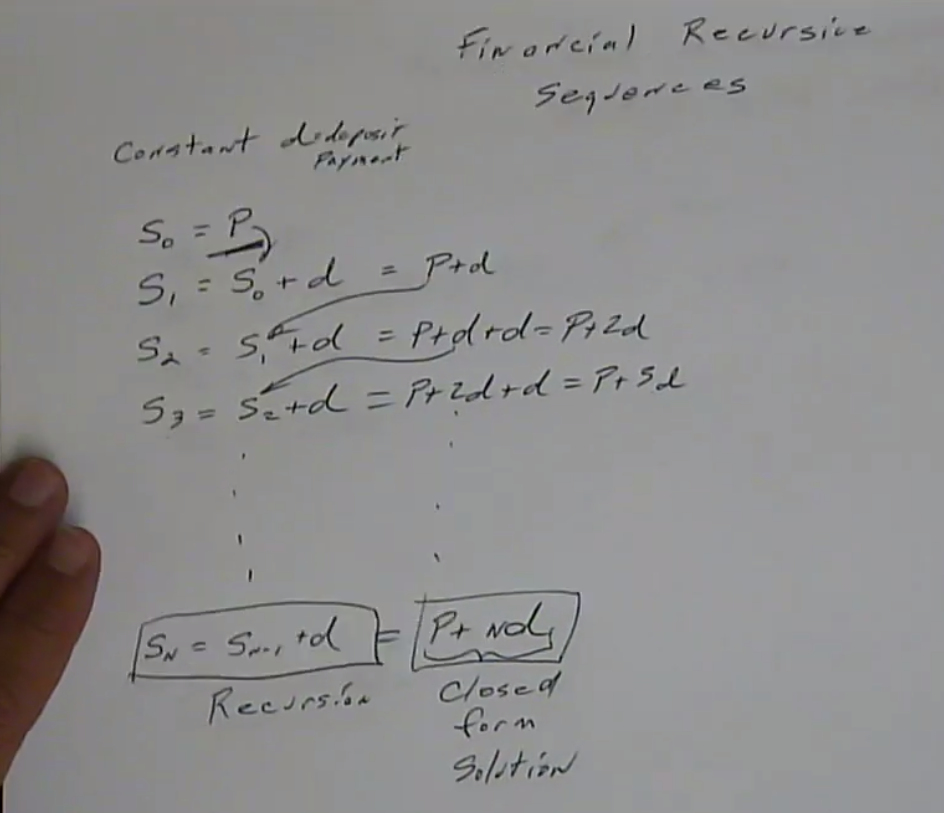 Financial Recursive
Sequences
Constant d=deposit
Payment
S₀ = P
S₁ = S₀ + d = P+d
S₂ = S₁ + d = P+d+d = P+2d
S₃ = S₂+d = P+2d+d = P+3d
S_N = S_{N-1} + d = P+ Nd
Recursion
Closed
form
Solution